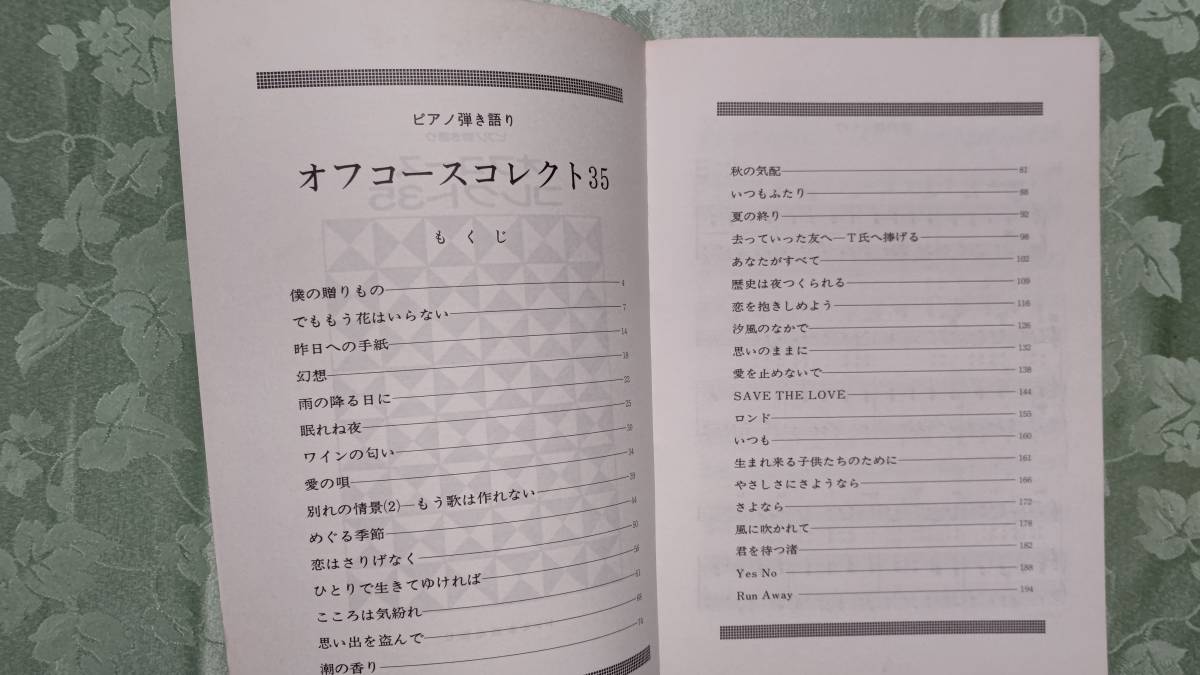 ピアノ弾き語り
オフコースコレクト35
もくじ
僕の贈りもの 4
でももう花はいらない 7
昨日への手紙 14
幻想 18
雨の降る日に 22
眠れね夜 25
ワインの匂い 30
愛の唄 34
別れの情景(2)—もう歌は作れない 39
めぐる季節 44
恋はさりげなく 50
ひとりで生きてゆければ 56
こころは気紛れ 61
思い出を盗んで 68
潮の香り 74
秋の気配 81
いつもふたり 88
夏の終り 92
去っていった友へ—T氏へ捧げる 98
あなたがすべて 102
歴史は夜つくられる 109
恋を抱きしめよう 116
汐風のなかで 126
思いのままに 132
愛を止めないで 138
SAVE THE LOVE 144
ロンド 155
いつも 160
生まれ来る子供たちのために 161
やさしさにさようなら 166
さよなら 172
風に吹かれて 178
君を待つ渚 182
Yes No 188
Run Away 194